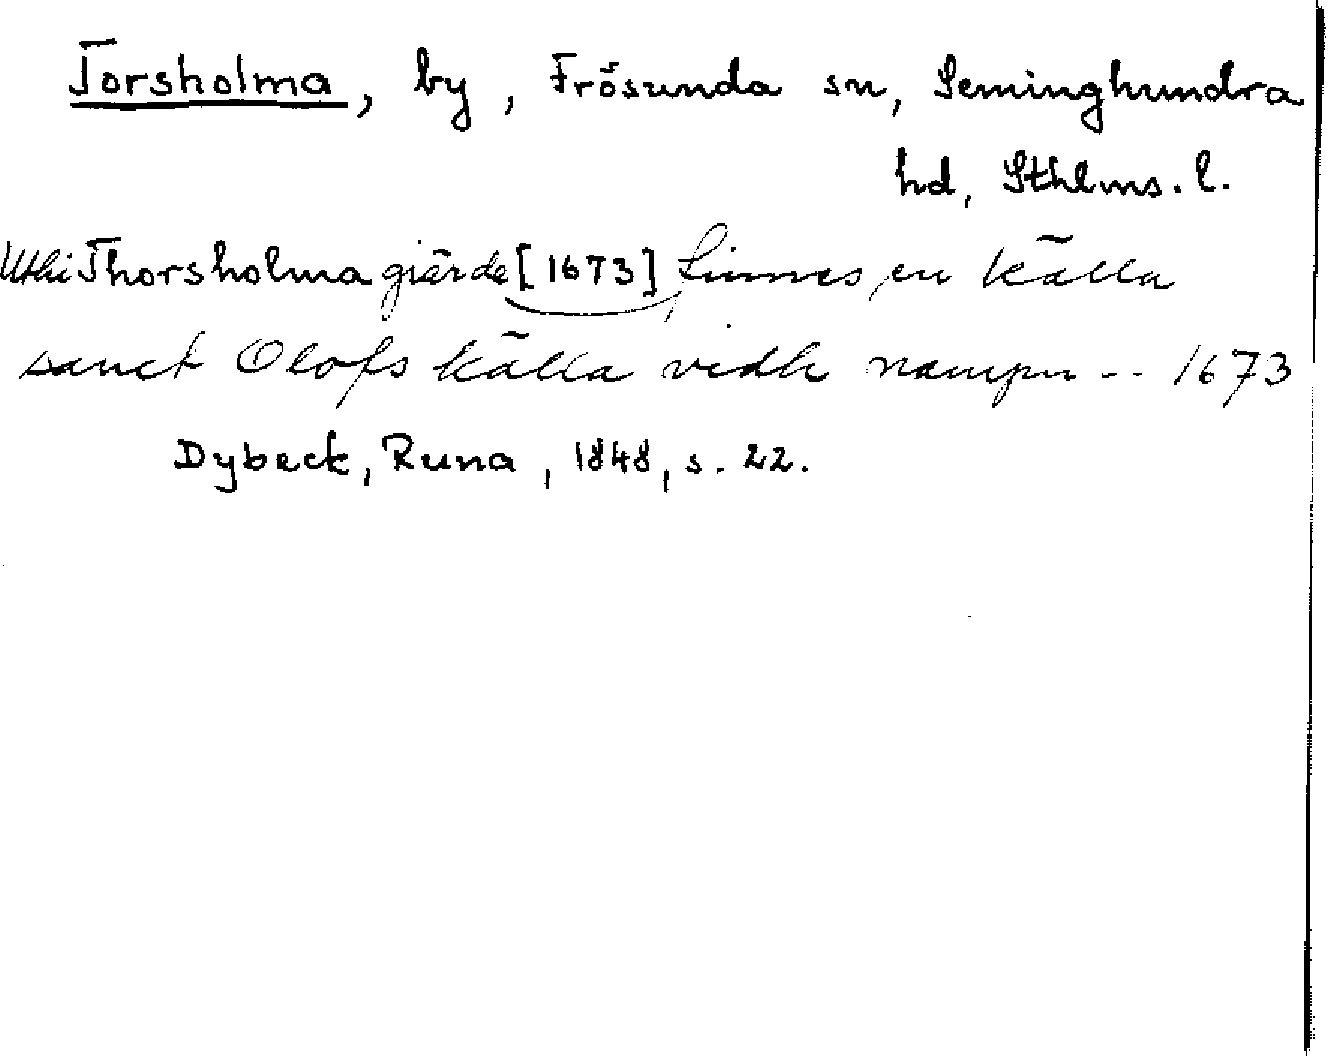 Torsholma, by, Frösunda sn, Seminghundra
hd, Sthlms. l.
Uthi Thorsholma giärde [1673] finnes en källa
sanct Olofs källa vidh nampn -- 1673
Dybeck, Runa, 1848, s. 22.